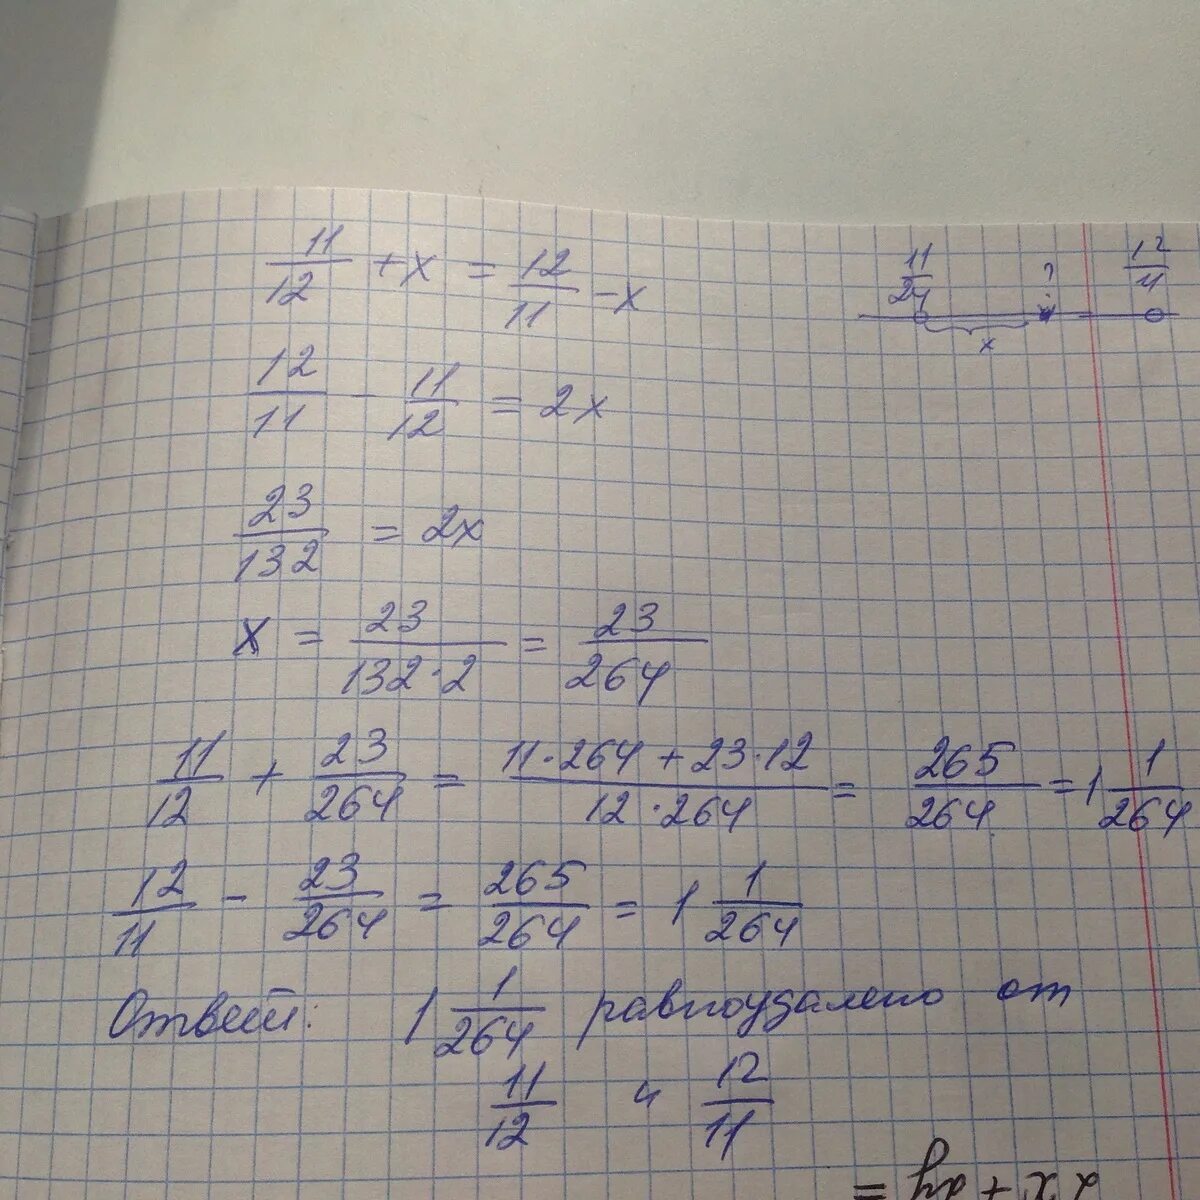 11/12 + x = 12/11 - x
11/24 ? 12/11
x
12/11 - 11/12 = 2x
23/132 = 2x
x = 23/(132·2) = 23/264
11/12 + 23/264 = (11·264 + 23·12)/(12·264) = 265/264 = 1 1/264
12/11 - 23/264 = 265/264 = 1 1/264
Ответ: 1 1/264 равноудалено от
11/12 и 12/11